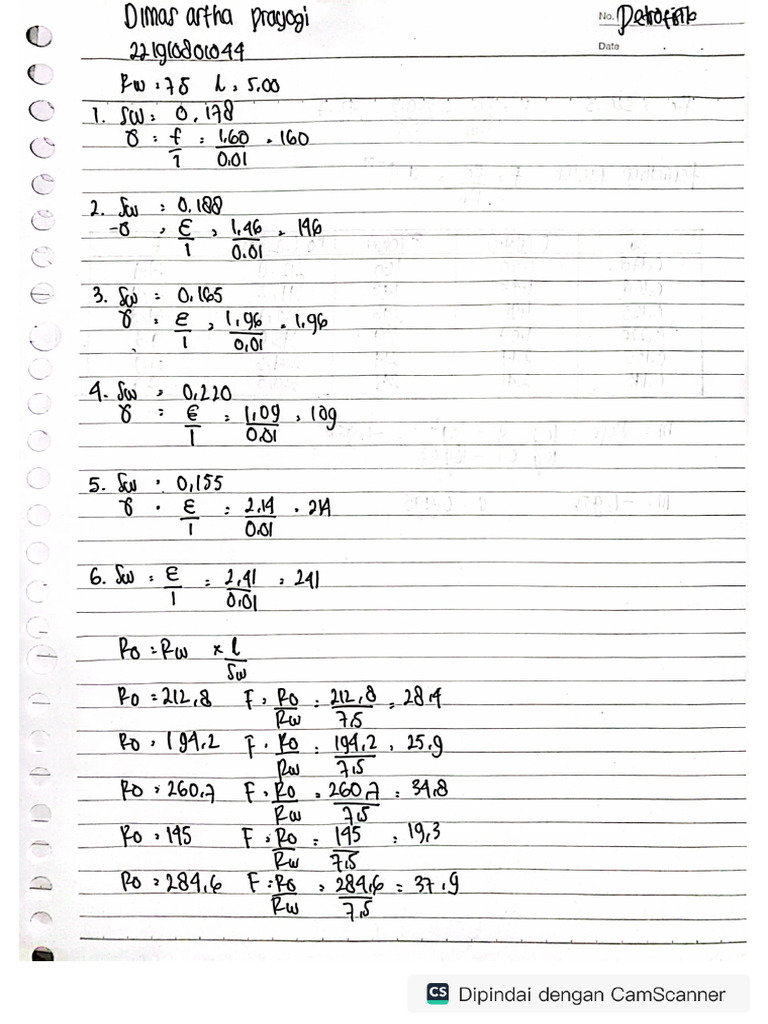 Dimas artha prayogi
No. Petrofisik
221910801044
Date
Rw = 75 L = 5.00
1. Sw = 0,178
γ = f/1 = 1.60/0.01 = 160
2. Sw = 0.188
γ = ε/1 = 1,46/0.01 = 146
3. Sw = 0.165
γ = ε/1 = 1,96/0,01 = 1.96
4. Sw = 0,220
γ = ε/1 = 1,09/0.01 = 109
5. Sw = 0,155
γ = ε/1 = 2.14/0.01 = 214
6. Sw = ε/1 = 2,41/0,01 = 241
Ro = Rw x L/Sw
Ro = 212,8 F = Ro/Rw = 212,8/7.5 = 28.4
Ro = 194.2 F = Ro/Rw = 194.2/7.5 = 25.9
Ro = 260.7 F = Ro/Rw = 260.7/7.5 = 34.8
Ro = 145 F = Ro/Rw = 145/7.5 = 19,3
Ro = 284,6 F = Ro/Rw = 284,6/7.5 = 37.9
CS Dipindai dengan CamScanner